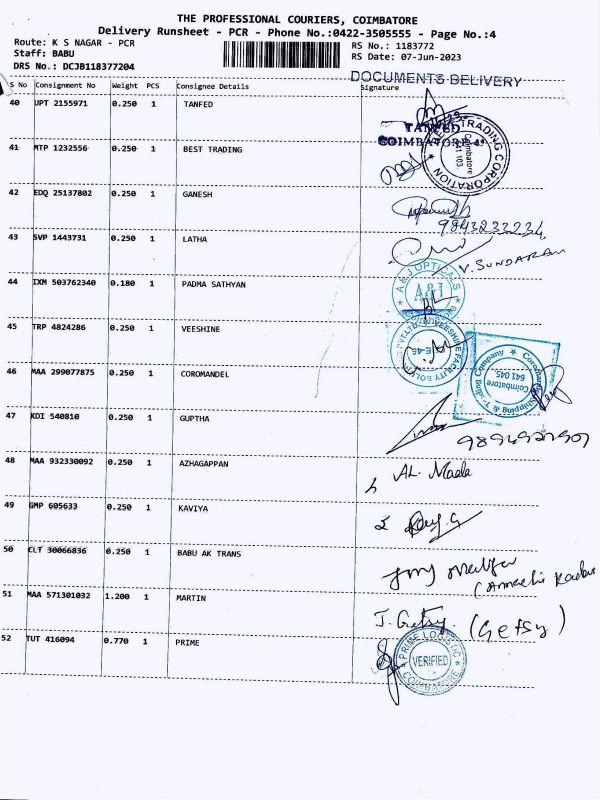 THE PROFESSIONAL COURIERS, COIMBATORE
Delivery Runsheet - PCR - Phone No.:0422-3505555 - Page No.:4
Route: K S NAGAR - PCR
RS No.: 1183772
Staff: BABU
RS Date: 07-Jun-2023
DRS No.: DCJB118377204
DOCUMENTS DELIVERY
S No Consignment No Weight PCS Consignee Details Signature
40 UPT 2155971 0.250 1 TANFED
TANFED
COIMBATORE
TRADING CORPORATION
Coimbatore
41 MTP 1232556 0.250 1 BEST TRADING
42 EDQ 25137802 0.250 1 GANESH
9843233234
43 SVP 1443731 0.250 1 LATHA
V. SUNDARAM
44 IXM 503762340 0.180 1 PADMA SATHYAN
A&J OPTICALS
A&J
45 TRP 4824286 0.250 1 VEESHINE
VEESHINE FACILITY
46 MAA 299077875 0.250 1 COROMANDEL
Shipping & Trading Company
Coimbatore
641 045
47 KDI 540810 0.250 1 GUPTHA
48 MAA 932330092 0.250 1 AZHAGAPPAN
AL.
49 GMP 605633 0.250 1 KAVIYA
50 CLT 30066836 0.250 1 BABU AK TRANS
51 MAA 571301032 1.200 1 MARTIN
J. Getsy. (Getsy)
52 TUT 416094 0.770 1 PRIME
PRIME LOGISTIC
VERIFIED
COIMBATORE